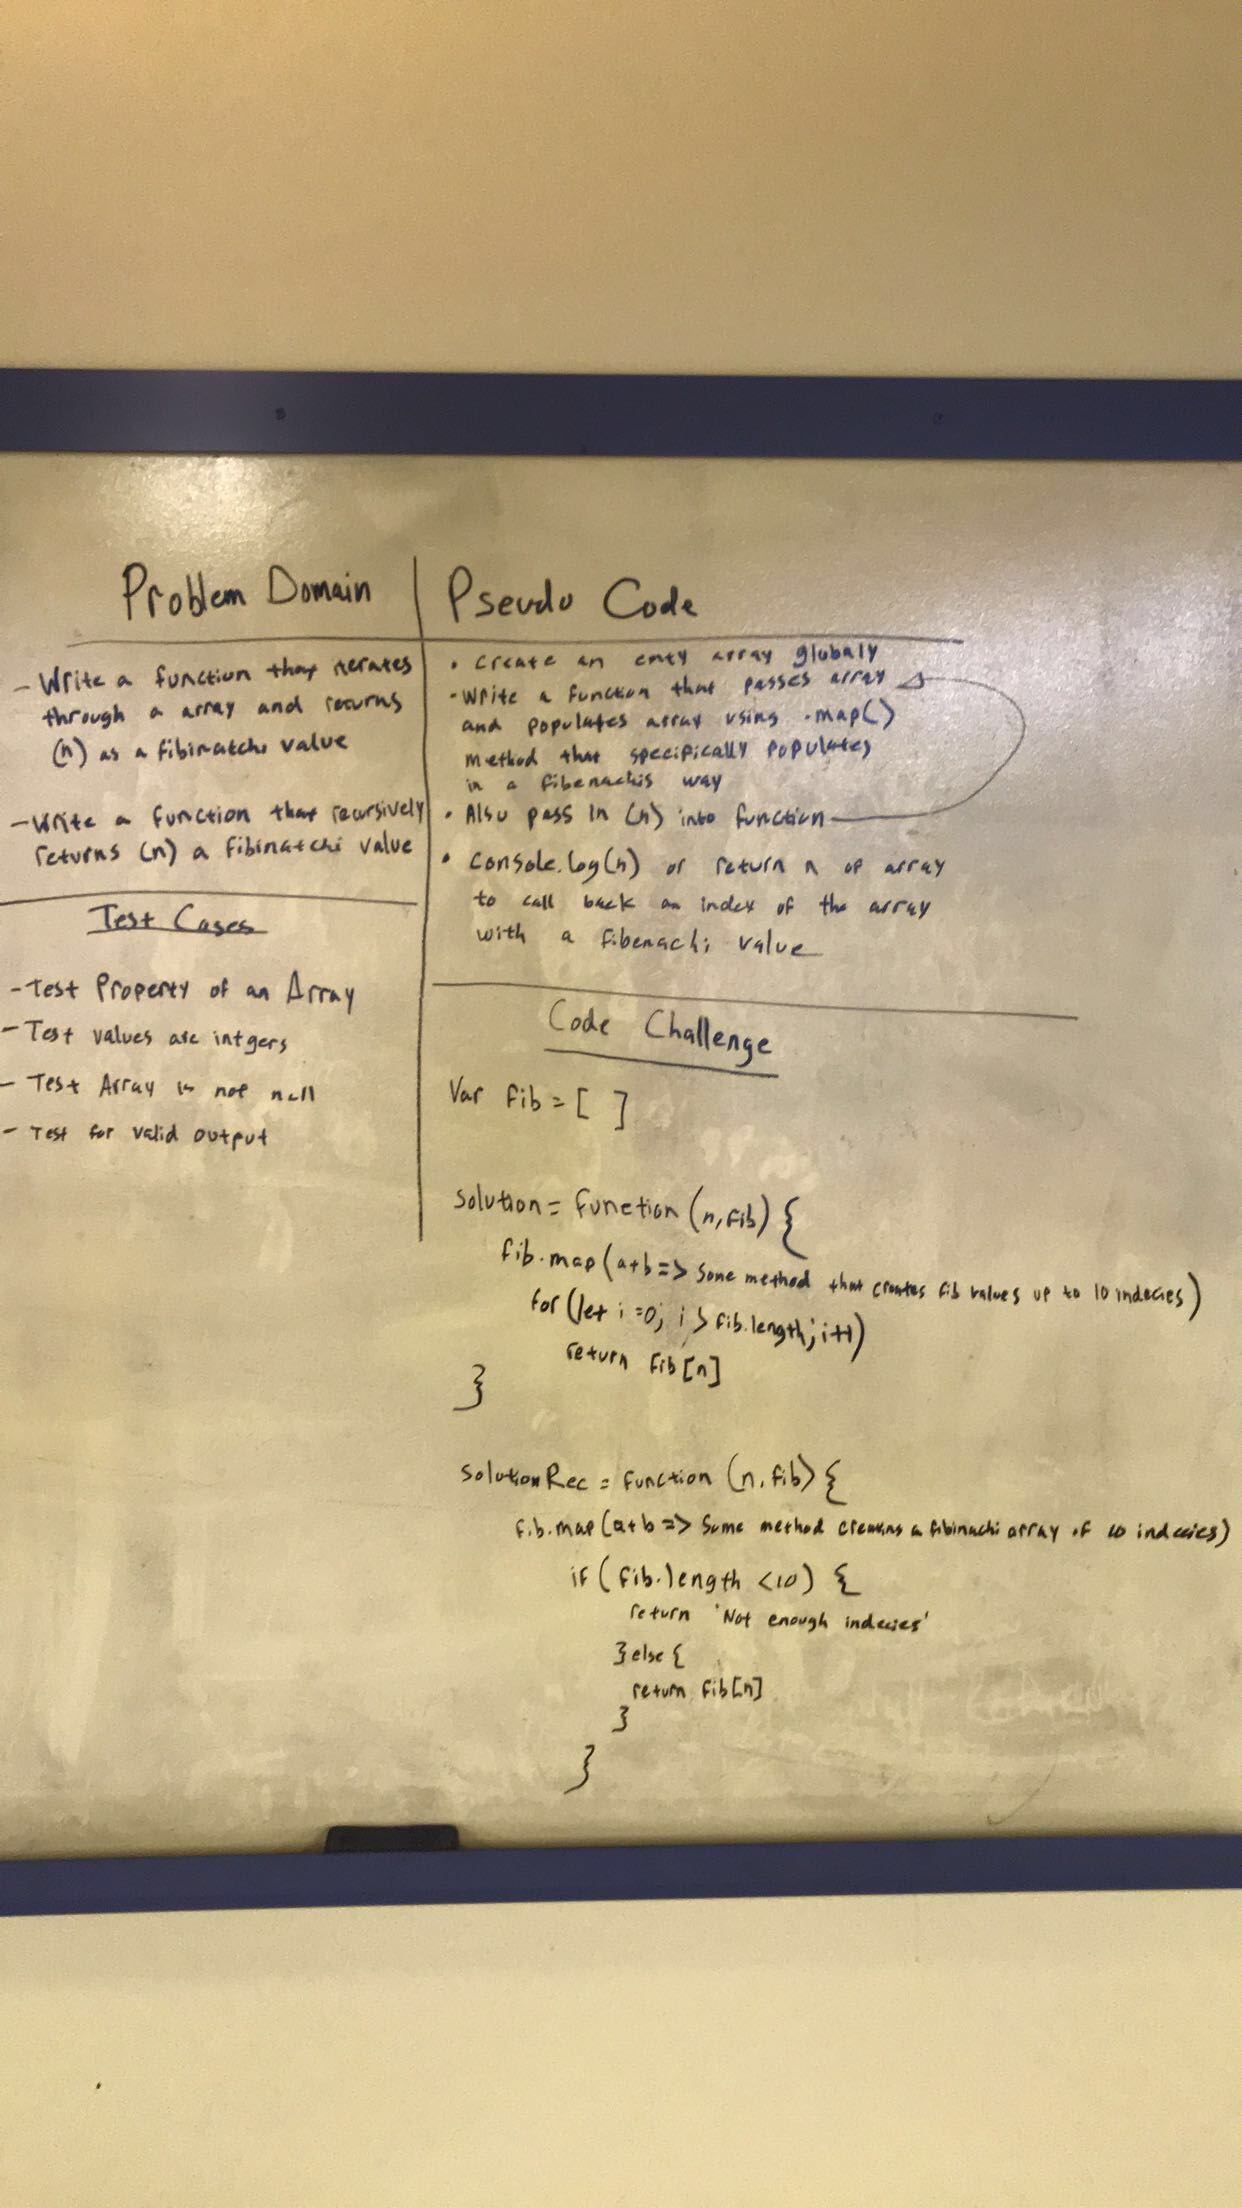 Problem Domain
- Write a function that iterates
through a array and returns
(n) as a fibinatchi value
- Write a function that recursively
returns (n) a fibinatchi value
Test Cases
- Test Property of an Array
- Test values are intgers
- Test Array is not null
- Test for valid output
Pseudo Code
• Create an emty array globaly
• Write a function that passes array
and populates array using .map()
method that specifically populates
in a fibenachis way
• Also pass in (n) into function
• Console.log(n) or return n of array
to call back an index of the array
with a fibenachi value
Code Challenge
Var fib = [ ]
Solution = function (n, fib) {
fib.map(a+b => Some method that creates fib values up to 10 indecies)
for (let i = 0; i > fib.length; i++)
return fib[n]
}
SolutionRec = function (n, fib) {
fib.map(a+b => Some method creating a fibinachi array of 10 indecies)
if (fib.length < 10) {
return 'Not enough indecies'
} else {
return fib[n]
}
}